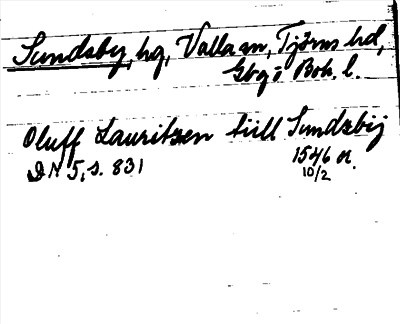 Sundsby, hg, Valla sn, Tjörns hd,
Gbg o Boh. l.
Oluff Lauritzen till Sundzbij
DN 5, s. 831
1546 or.
10/2